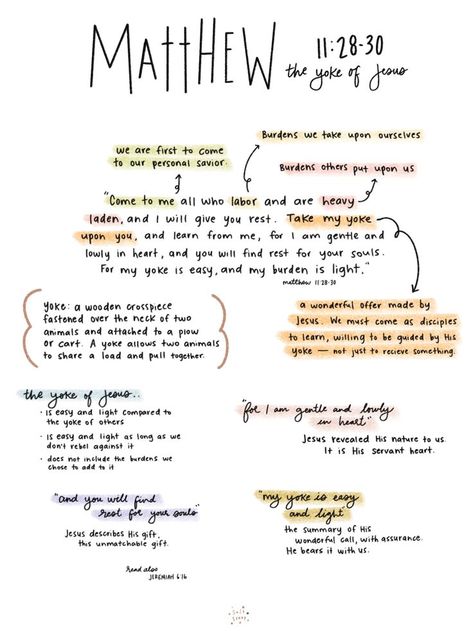 MATTHEW 11:28-30
the yoke of Jesus
Burdens we take upon ourselves
we are first to come
to our personal savior.
Burdens others put upon us
"Come to me all who labor and are heavy
laden, and I will give you rest. Take my yoke
upon you, and learn from me, for I am gentle and
lowly in heart, and you will find rest for your souls.
For my yoke is easy, and my burden is light."
matthew 11:28-30
yoke: a wooden crosspiece
fastoned over the neck of two
animals and attached to a plow
or cart. A yoke allows two animals
to share a load and pull together.
a wonderful offer made by
Jesus. We must come as disciples
to learn, willing to be guided by His
yoke — not just to recieve something.
the yoke of Jesus..
· is easy and light compared to
the yoke of others
· is easy and light as long as we
don't rebel against it
· does not include the burdens we
chose to add to it
"for I am gentle and lowly
in heart"
Jesus revealed His nature to us.
It is His servant heart.
"and you will find
rest for your souls"
Jesus describes His gift,
this unmatchable gift.
read also
JEREMIAH 6:16
"my yoke is easy
and light"
the summary of His
wonderful call, with assurance.
He bears it with us.